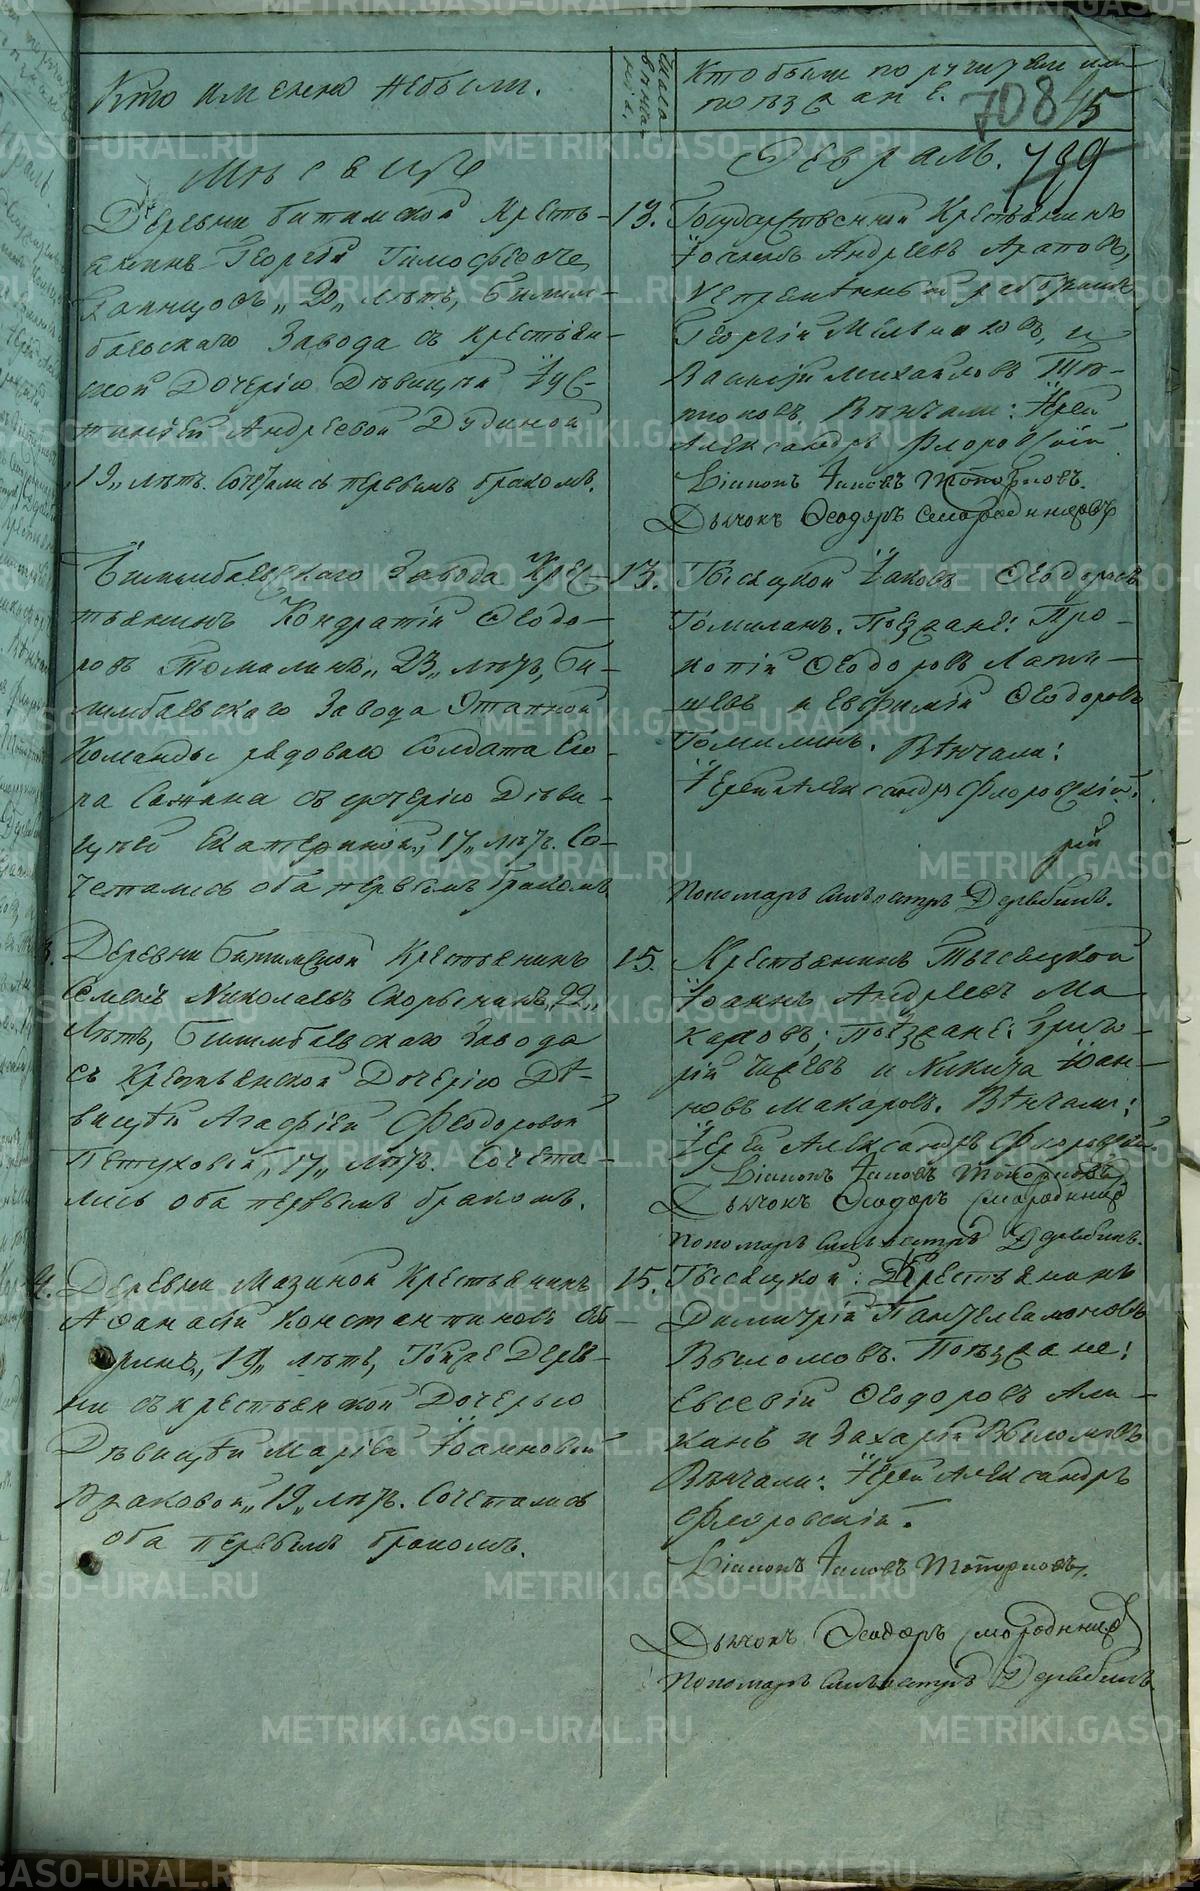 Кто именно небыли.
Числа венчанія.
Кто были поручители или поѣзжане.
708
45
799
Мѣсяцъ
Февраль.
Деревни битимской Кресть-
янинъ Георгій Тимофеевъ
20 лѣтъ, Билим-
баевскаго Завода съ крестьян-
ской Дочерію Дѣвицей Іус-
тиніей Андреевой Дудиной
19 лѣтъ. Сочетались первымъ бракомъ.
13.
Государственной Крестьянинъ
Іоаннъ Андреевъ Араповъ,
Непремѣнный работникъ
Георгій и
Василій Михаиловъ
Вѣнчали: Іерей
Александръ Флоровскій
Діаконъ Іаковъ Топорковъ.
Дьячокъ Ѳеодоръ Смородинцевъ
Билимбаевскаго Завода Крес-
тьянинъ Кондратій Ѳеодо-
ровъ Томилинъ 23 лѣтъ, Би-
лимбаевскаго Завода Этапной
Команды рядоваго Солдата Его-
ра съ дочерію Дѣви-
цей Екатериной, 17 лѣтъ. Со-
четались оба первымъ бракомъ
13.
Тысяцкой Іаковъ Ѳеодоровъ
Томилинъ. Поѣзжане: Про-
копій Ѳеодоровъ
и Евфимій Ѳеодоровъ
Томилинъ. Вѣнчали:
Іерей Александръ Флоровскій.
рій
Пономарь Сильвестръ Дерябинъ.
3. Деревни Битимской Крестьянинъ
Семенъ Николаевъ Скорынинъ 22
Лѣтъ, Билимбаевскаго Завода
съ Крестьянской Дочерію Дѣ-
вицей Агафіей Феодоровой
Петуховой, 17 лѣтъ. Сочета-
лись оба первымъ бракомъ.
15.
Крестьянинъ Тысяцкой
Іоаннъ Андреевъ Ма-
каровъ; поѣзжане: Григо-
рій и Никита Іоан-
новъ Макаровъ. Вѣнчали:
Іерей Александръ Флоровскій.
Діаконъ Іаковъ Топорковъ
Дьячокъ Ѳеодоръ Смородинцев
Пономарь Сильвестръ Дерябинъ.
4. Деревни Мазиной Крестьянинъ
Аѳанасій Константиновъ
19 лѣтъ, Тойже Дерев-
ни съ крестьянской Дочерью
Дѣвицей Маріей Іоанновой
19 лѣтъ. Сочетались
оба первымъ бракомъ.
15.
Тысяцкой: Крестьянинъ
Димитрій Пантелеимоновъ
Выломовъ. Поѣзжане:
Евсевій Ѳеодоровъ
и Захарій Выломовъ
Вѣнчали: Іерей Александръ
Флоровскій.
Діаконъ Іаковъ Топорковъ.
Дьячокъ Ѳеодоръ Смородинцев
Пономарь Сильвестръ Дерябинъ
METRIKI.GASO-URAL.RU